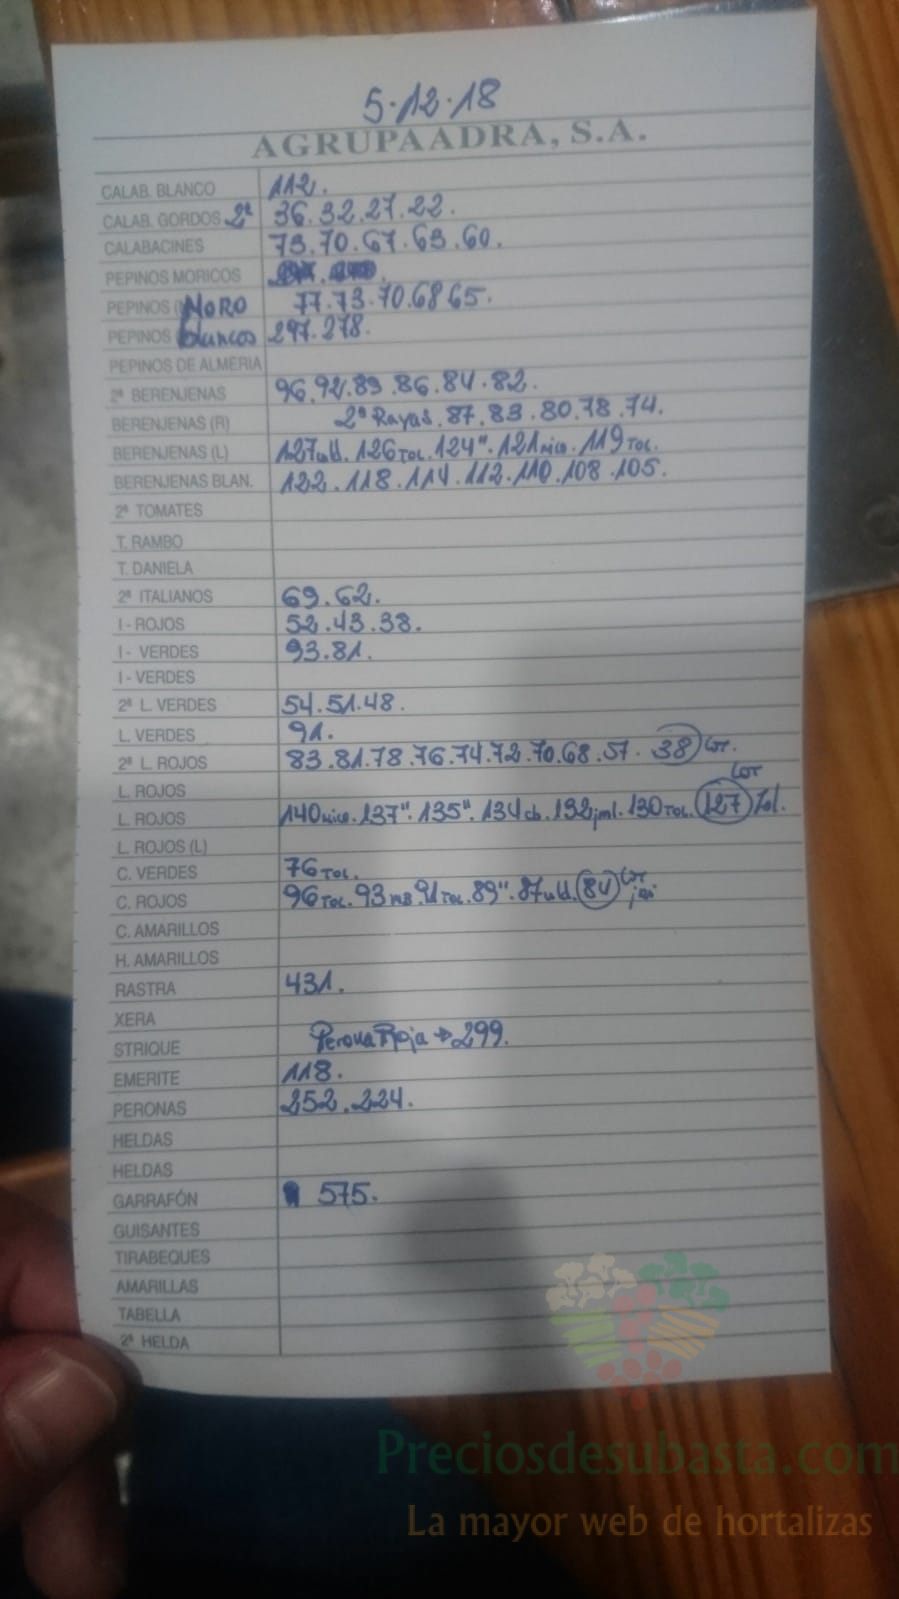 5.12.18
AGRUPAADRA, S.A.
CALAB. BLANCO 112.
CALAB. GORDOS 2ª 36.32.27.22.
CALABACINES 73.70.67.63.60.
PEPINOS MORICOS
PEPINOS MORO 77.73.70.68.65.
PEPINOS blancos 297.278.
PEPINOS DE ALMERIA
2ª BERENJENAS 96.92.89.86.84.82.
BERENJENAS (R) 2ª Rayas.87.83.80.78.74.
BERENJENAS (L) 127 . 126 Tol. 124". 121 nico. 119 Tol.
BERENJENAS BLAN. 122.118.114.112.110.108.105.
2ª TOMATES
T. RAMBO
T. DANIELA
2ª ITALIANOS 69.62.
I - ROJOS 52.43.38.
I - VERDES 93.81.
I - VERDES
2ª L. VERDES 54.51.48.
L. VERDES 91.
2ª L. ROJOS 83.81.78.76.74.72.70.68.57. 38 Cor.
L. ROJOS Cor
L. ROJOS 140 nico. 137". 135". 134 cb. 132 jml. 130 Tol. 127 Tol.
L. ROJOS (L)
C. VERDES 76 Tol.
C. ROJOS 96 Tol. 93 . 91 Tol. 89". 87 . 84 Cor
C. AMARILLOS
H. AMARILLOS
RASTRA 431.
XERA
STRIQUE Perona Roja → 299.
EMERITE 118.
PERONAS 252.224.
HELDAS
HELDAS
GARRAFÓN 575.
GUISANTES
TIRABEQUES
AMARILLAS
TABELLA
2ª HELDA
Preciosdesubasta.com
La mayor web de hortalizas